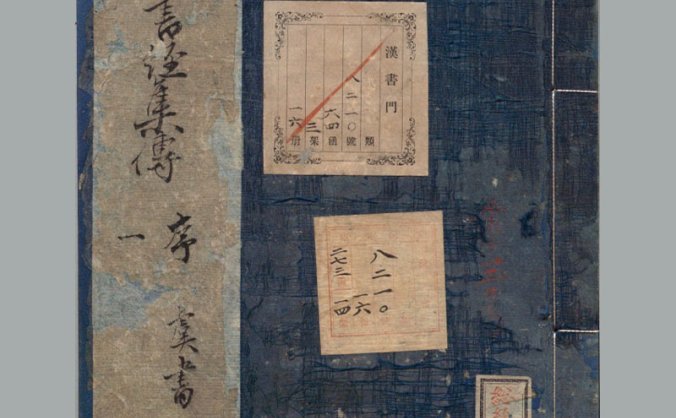 漢書門
類
八二一〇號
六四函
三架
一六冊
八二一〇
一六
二七三 一四
書經集傳
序 虞書
一